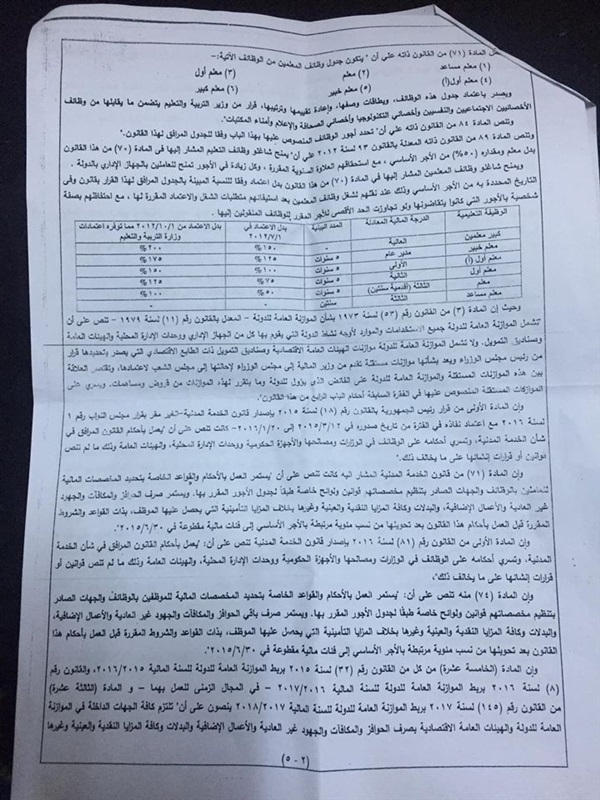 المادة (٧١) من القانون ذاته علي أن " يتكون جدول وظائف المعلمين من الوظائف الآتية:–
(١) معلم مساعد (٢) معلم (٣) معلم أول
(٤) معلم أول(أ) (٥) معلم خبير (٦) معلم كبير
ويصدر باعتماد جدول هذه الوظائف، وبطاقات وصفها، وإعادة تقييمها وترتيبها، قرار من وزير التربية والتعليم يتضمن ما يقابلها من وظائف
الأخصائيين الاجتماعيين والنفسيين وأخصائي التكنولوجيا وأخصائي الصحافة والإعلام وأمناء المكتبات."
وتنص المادة ٨٤ من القانون ذاته علي أن " تحدد أجور الوظائف المنصوص عليها بهذا الباب وفقا للجدول المرافق لهذا القانون."
وتنص المادة ٨٩ من القانون ذاته المعدلة بالقانون ٩٣ لسنة ٢٠١٢ علي أن " يمنح شاغلو وظائف التعليم المشار إليها في المادة (٧٠) من هذا القانون
بدل معلم ومقداره (٥٠%) من الأجر الأساسي ، مع استحقاقهم العلاوة السنوية المقررة ، وكل زيادة في الأجور تمنح للعاملين بالجهاز الإداري بالدولة .
ويمنح شاغلو وظائف المعلمين المشار إليها في المادة (٧٠) من هذا القانون بدل اعتماد وفقا للنسبة المبينة بالجدول المرافق لهذا القرار بقانون وفى
التاريخ المحددة به من الأجر الأساسي وذلك عند نقلهم لشغل وظائف المعلمين بعد استيفائهم متطلبات الشغل والاعتماد المقررة لها ، مع احتفاظهم بصفة
شخصية بالأجور التي كانوا يتقاضونها ولو تجاوزت الحد الأقصى للأجر المقرر للوظائف المنقولين إليها .
الوظيفة التعليمية الدرجة المالية المعادلة المدد البينية بدل الاعتماد في ٢٠١٢/٧/١ بدل الاعتماد من ٢٠١٢/١٠/١ مما توفره اعتمادات وزارة التربية والتعليم
كبير معلمين العالية - ١٥٠% ٢٠٠%
معلم خبير مدير عام ٥ سنوات ١٢٥% ١٧٥%
معلم أول (أ) الأولي ٥ سنوات ١٠٠% ١٥٠%
معلم أول الثانية ٥ سنوات ٧٥% ١٢٥%
معلم الثالثة (أقدمية سنتين) ٥ سنوات ٥٠% ١٠٠%
معلم مساعد الثالثة سنتين - -
وحيث إن المادة (٣) من القانون رقم (٥٣) لسنة ١٩٧٣ بشأن الموازنة العامة للدولة – المعدل بالقانون رقم (١١) لسنة ١٩٧٩ – تنص على أن
تشمل الموازنة العامة للدولة جميع الاستخدامات والموارد لأوجه نشاط الدولة التي يقوم بها كل من الجهاز الإداري ووحدات الإدارة المحلية والهيئات العامة
وصناديق التمويل. ولا تشمل الموازنة العامة للدولة موازنات الهيئات العامة الاقتصادية وصناديق التمويل ذات الطابع الاقتصادي التي يصدر بتحديدها قرار
من رئيس مجلس الوزراء ويعد بشأنها موازنات مستقلة تقدم من وزير المالية إلى مجلس الوزراء لإحالتها إلى مجلس الشعب لاعتمادها، وتقتصر العلاقة
بين هذه الموازنات المستقلة والموازنة العامة للدولة على الفائض الذي يؤول للدولة وما يتقرر لهذه الموازنات من قروض ومساهمات. ويسري على
الموازنات المستقلة المنصوص عليها في الفقرة السابقة أحكام الباب الرابع من هذا القانون".
وإن المادة الأولى من قرار رئيس الجمهورية بالقانون رقم (١٨) لسنة ٢٠١٥ بإصدار قانون الخدمة المدنية –الغير مقر بقرار مجلس النواب رقم ١
لسنة ٢٠١٦ مع اعتماد نفاذه في الفترة من تاريخ صدوره في ٢٠١٥/٣/١٢ حتى ٢٠١٦/١/٢٠– كانت تنص على أن "يعمل بأحكام القانون المرافق في
شأن الخدمة المدنية، وتسري أحكامه على الوظائف في الوزارات ومصالحها والأجهزة الحكومية ووحدات الإدارة المحلية، والهيئات العامة وذلك ما لم تنص
قوانين أو قرارات إنشائها على ما يخالف ذلك."
وإن المادة (٧١) من قانون الخدمة المدنية المشار إليه كانت تنص على أن "يستمر العمل بالأحكام والقواعد الخاصة بتحديد المخصصات المالية
للعاملين بالوظائف والجهات الصادر بتنظيم مخصصاتهم قوانين ولوائح خاصة طبقا لجدول الأجور المقرر بها. ويستمر صرف الحوافز والمكافآت والجهود
غير العادية والأعمال الإضافية، والبدلات وكافة المزايا النقدية والعينية وغيرها بخلاف المزايا التأمينية التي يحصل عليها الموظف، بذات القواعد والشروط
المقررة قبل العمل بأحكام هذا القانون بعد تحويلها من نسب مئوية مرتبطة بالأجر الأساسي إلى فئات مالية مقطوعة في ٢٠١٥/٦/٣٠".
وإن المادة الأولى من القانون رقم (٨١) لسنة ٢٠١٦ بإصدار قانون الخدمة المدنية تنص على أن: "يعمل بأحكام القانون المرافق في شأن الخدمة
المدنية، وتسري أحكامه على الوظائف في الوزارات ومصالحها والأجهزة الحكومية ووحدات الإدارة المحلية، والهيئات العامة وذلك ما لم تنص قوانين أو
قرارات إنشائها على ما يخالف ذلك".
وإن المادة (٧٤) منه تنص على أن: "يستمر العمل بالأحكام والقواعد الخاصة بتحديد المخصصات المالية للموظفين بالوظائف والجهات الصادر
بتنظيم مخصصاتهم قوانين ولوائح خاصة طبقًا لجدول الأجور المقرر بها. ويستمر صرف باقي الحوافز والمكافآت والجهود غير العادية والأعمال الإضافية،
والبدلات وكافة المزايا النقدية والعينية وغيرها بخلاف المزايا التأمينية التي يحصل عليها الموظف، بذات القواعد والشروط المقررة قبل العمل بأحكام هذا
القانون بعد تحويلها من نسب مئوية مرتبطة بالأجر الأساسي إلى فئات مالية مقطوعة في ٢٠١٥/٦/٣٠".
وإن المادة (الخامسة عشرة) من كل من القانون رقم (٣٢) لسنة ٢٠١٥ بربط الموازنة العامة للدولة للسنة المالية ٢٠١٦/٢٠١٥، والقانون رقم
(٨) لسنة ٢٠١٦ بربط الموازنة العامة للدولة للسنة المالية ٢٠١٧/٢٠١٦ – في المجال الزمني للعمل بهما – و المادة (الثالثة عشرة)
من القانون رقم (١٤٥) لسنة ٢٠١٧ بربط الموازنة العامة للدولة للسنة المالية ٢٠١٨/٢٠١٧ ينصون على أن" تلتزم كافة الجهات الداخلة في الموازنة
العامة للدولة والهيئات العامة الاقتصادية بصرف الحوافز والمكافآت والجهود غير العادية والأعمال الإضافية والبدلات وكافة المزايا النقدية والعينية وغيرها
(٢ – ٥)